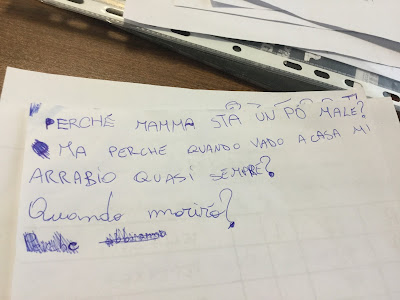 PERCHÉ MAMMA STÀ UN PÒ MALE?
MA PERCHE QUANDO VADO A CASA MI
ARRABIO QUASI SEMPRE?
Quando morirò?